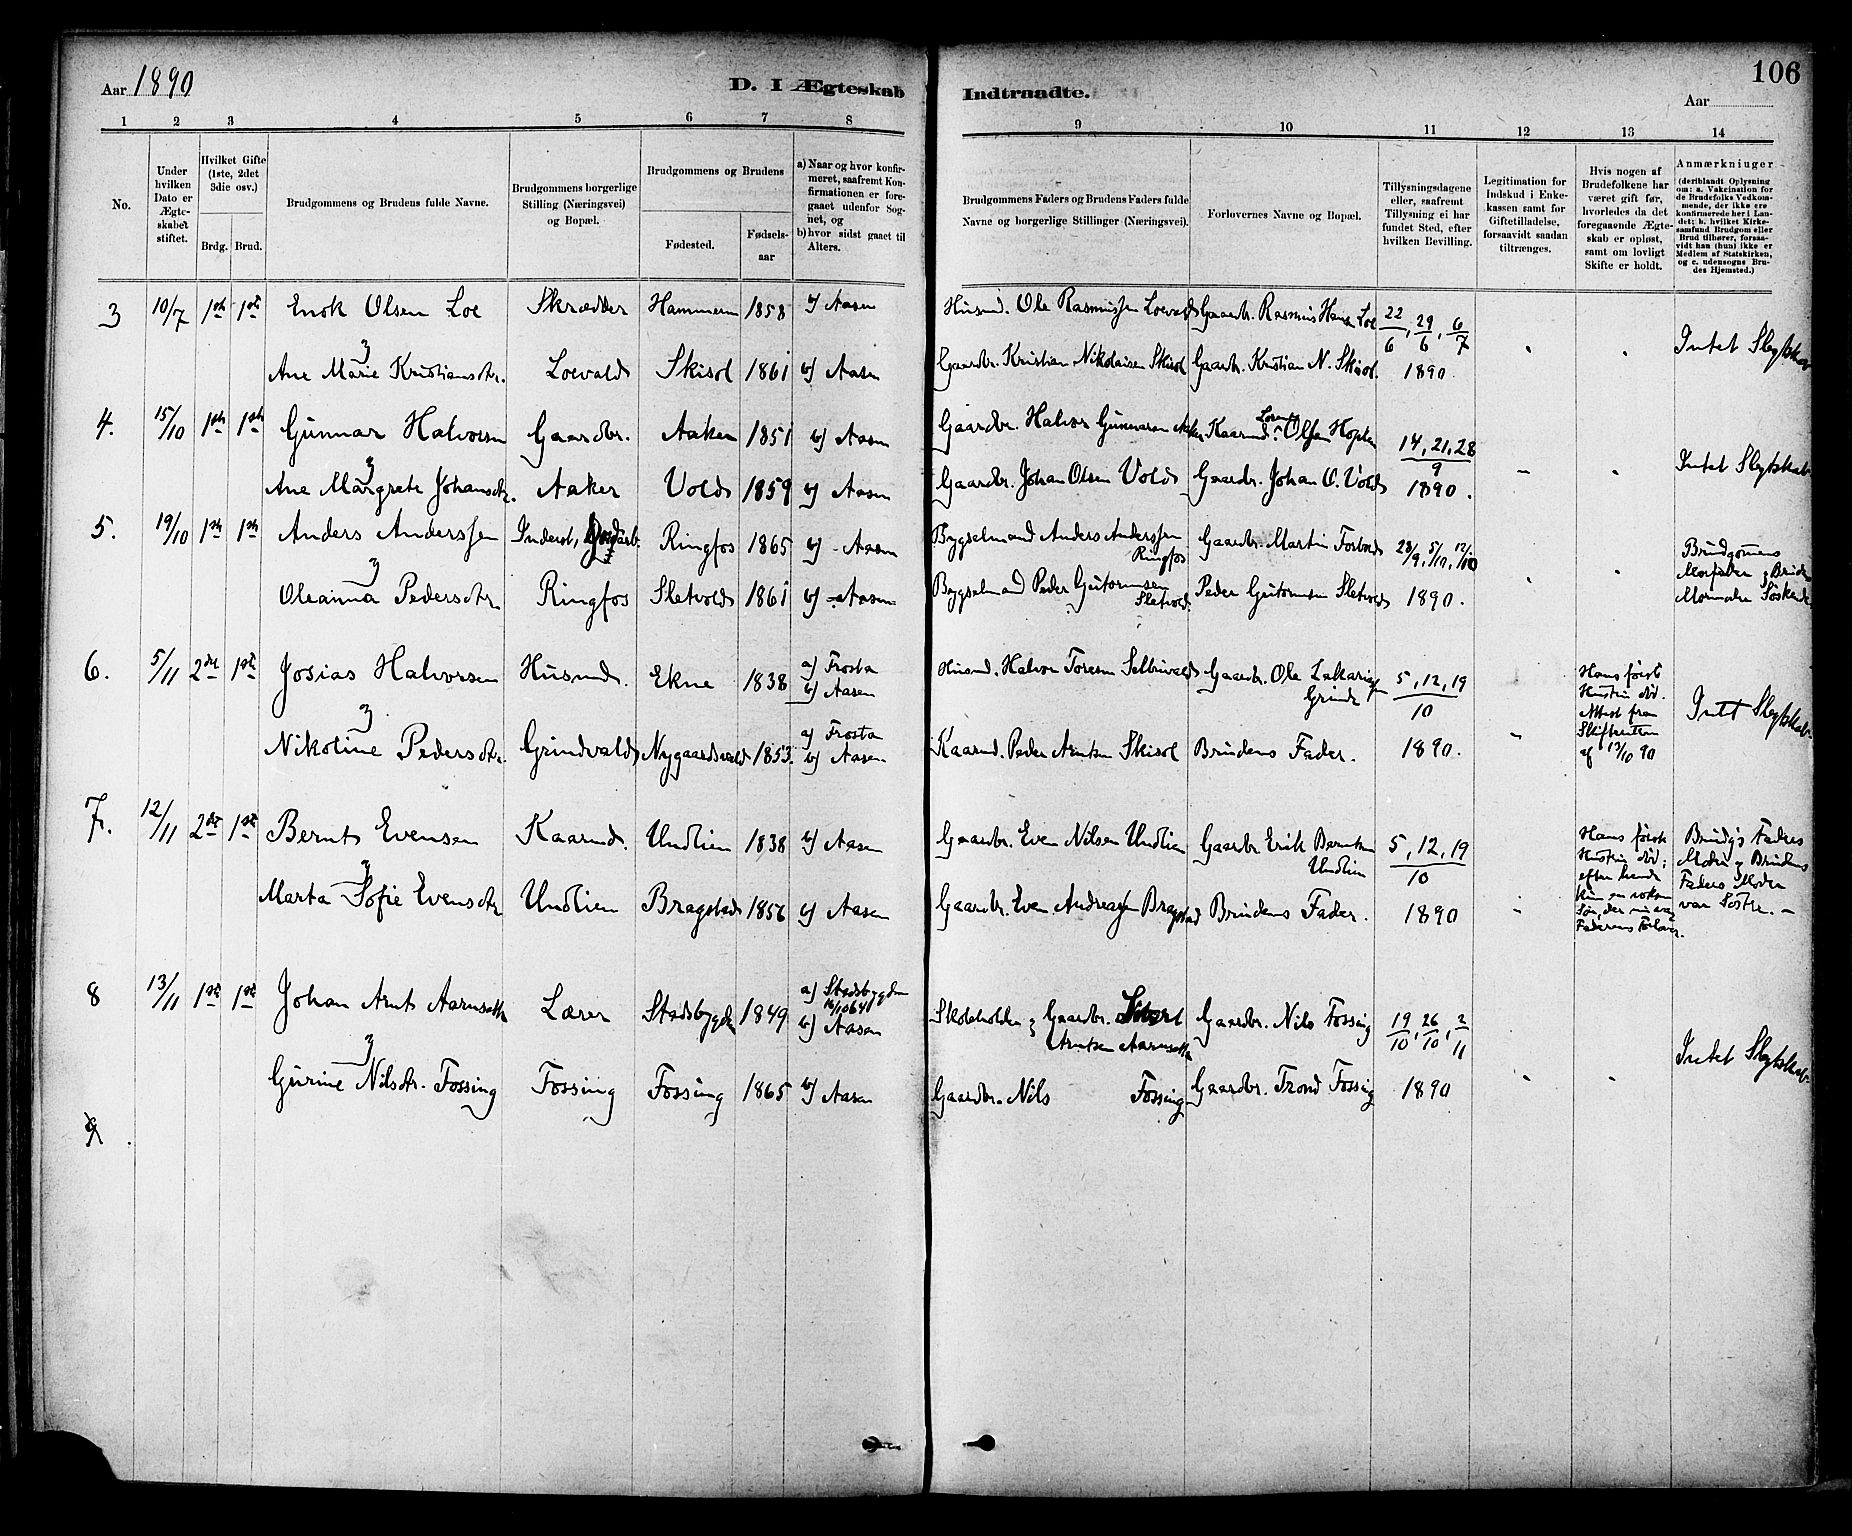 Aar 1890
D. I Ægteskab Indtraadte.
106
Aar
1 2 3 4 5 6 7 8 9 10 11 12 13 14
No.
Under hvilken Dato er Ægteskabet stiftet.
Hvilket Gifte (1ste, 2det 3die osv.)
Brdg. Brud.
Brudgommens og Brudens fulde Navne.
Brudgommens borgerlige Stilling (Næringsvei) og Bopæl.
Brudgommens og Brudens
Fødested. Fødselsaar
a) Naar og hvor konfirmeret, saafremt Konfirmationen er foregaaet udenfor Sognet, og
b) hvor sidst gaaet til Alters.
Brudgommens Faders og Brudens Faders fulde Navne og borgerlige Stillinger (Næringsvei).
Forlovernes Navne og Bopæl.
Tillysningsdagene eller, saafremt Tillysning ei har fundet Sted, efter hvilken Bevilling.
Legitimation for Indskud i Enkekassen samt for Giftetilladelse, forsaavidt saadan tiltrænges.
Hvis nogen af Brudefolkene har været gift før, hvorledes da det foregaaende Ægteskab er opløst, samt om lovligt Skifte er holdt.
Anmærkninger
(deriblandt Oplysning om: a. Vakcination for de Brudefolks Vedkommende, der ikke ere konfirmerede her i Landet; b. hvilket Kirkesamfund Brudgom eller Brud tilhører, forsaavidt han (hun) ikke er Medlem af Statskirken, og c. udensogns Brudes Hjemsted.)
3 10/7 1ste 1ste Enok Olsen Loe Skrædder Hammeren 1858 b) Aasen Husmd. Ole Rasmussen Loevald Gaardbr. Rasmus Hans. Loe 22/6, 29/6, 6/7
Intet Slegtskab
& Ane Marie Kristiansdtr. Loevald Skisol 1861 b) Aasen Gaardbr. Kristian Nikolaisen Skisol Gaardbr. Kristian N. Skisol. 1890.
4. 15/10 1ste 1ste Gunnar Halvorsen Gaardbr. Aaker 1851 b) Aasen Gaardbr. Halvor Gunnarsen Aaker Kaarmd. Lorents Olsen Hoplen 14, 21, 28/9
Intet Slegtskab
& Ane Margrete Johansdtr. Aaker Vold 1859 b) Aasen Gaardbr. Johan Olsen Vold Gaardbr. Johan O. Vold 1890.
5. 19/10 1ste 1ste Anders Anderssen Inderst, Ringfos 1865 b) Aasen Bygselmand Anders Anderssen Ringfos Gaardbr. Martin Forbord 28/9, 5/10, 12/10
Brudgommens Morfader & Brudens Mormoder Søskende
& Oleanna Pedersdtr. Ringfos Sletvold 1861 b) Aasen Bygselmand Peder Guttormsen Sletvold Peder Guttormsen Sletvold 1890.
6. 5/11 2det 1ste Josias Halvorsen Husmd. Ekne 1838 a) Frosta b) Aasen Husmd. Halvor Toresen Selbuvald Gaardbr. Ole Zakariassen Grindr 5, 12, 19/10
Hans første Hustru død. Attest fra Skifteretten af 13/10 90
Intet Slegtskab.
& Nikoline Pedersdtr. Grindvald Nygaardsvald 1853. a) Frosta b) Aasen Kaarmd. Peder Arntsen Skisol Brudens Fader. 1890.
7. 12/11 2det 1ste Bernt Evensen Kaarmd. Undlien 1838 b) Aasen Gaardbr. Even Nilsen Undlien Gaardbr Erik Berntsen Undlien 5, 12, 19/10
Hans første Hustru død; efter hende kun en voksen Søn, der nu var Faderens Forlover.
Brudg's Faders Moder & Brudens Faders Moder var Søstre.
& Marta Sofie Evensdtr Undlien Bragstad 1856 b) Aasen Gaardbr. Even Andreassen Bragstad Brudens Fader. 1890
8 13/11 1ste 1ste Johan Arnt Aarnseth Lærer Stadsbygden 1849 a) Stadsbygden 16/10 64 b) Aasen Skoleholder & Gaardbr. Sivert Arntsen Aarnseth Gaardbr. Nils Fossing 19/10, 26/10, 2/11
Intet Slegtskab.
& Gurine Nilsdtr. Fossing Fossing Fossing 1865 b) Aasen Gaardbr. Nils Fossing Gaardbr. Trond Fossing 1890
9.